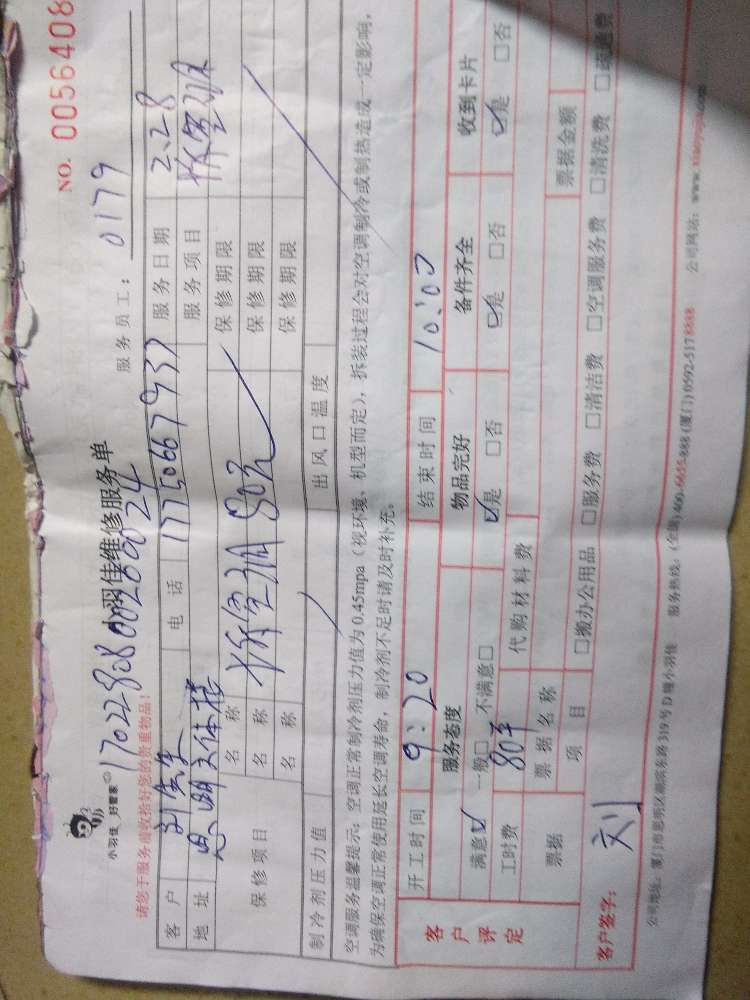 小羽佳 好管家
NO. 0056408
小羽佳维修服务单
服务员工: 0179
请您于服务前收拾好您的贵重物品!
客户 刘先生 电话 17750667937 服务日期 2.28
地址 思明文体楼 服务项目 拆空调
保修项目 名称 保修期限
名称 拆空调 80元 保修期限
名称 保修期限
制冷剂压力值 出风口温度
空调服务温馨提示: 空调正常制冷剂压力值为 0.45mpa (视环境、机型而定), 拆装过程会对空调制冷或制热造成一定影响,
为确保空调正常使用延长空调寿命, 制冷剂不足时请及时补充。
客户评定 开工时间 9:20 结束时间 10:00
服务态度 物品完好 备件齐全 收到卡片
满意☑ 一般□ 不满意□ ☑是 □否 ☑是 □否 ☑是 □否
工时费 80元 代购材料费
票据 票据名称 票据金额
项目 □搬办公用品 □服务费 □清洁费 □空调服务费 □清洗费 □疏通费
客户签字: 刘
公司地址: 厦门市思明区湖滨东路319号D幢小羽佳 服务热线: (全国)400-6655-888 (厦门)0592-5178888 公司网站: www.